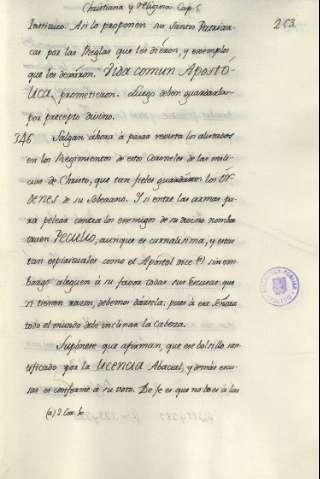 Christiana y Religiosa. Cap. 6
213.
Instituto. Asi lo proponen sus Santos Patriar-
cas por las Reglas que les dieron, y exemplos
que les dexaron. Vida comun Apostó-
lica, prometieron. Luego deben guardarla
por precepto divino.
346 Salgan ahora à pasar revista los alistados
en los Regimientos de esto de las mili-
cias de Christo, que tan fieles guardaron los Or-
denes de su Soberano. Y si entre las armas pa-
ra pelear contra los enemigos de su nombre
traen Peculio, aunque es carnalisima, y estos
tan espirituales como el Apóstol dice (a) sin em-
bargo aleguen à su favor todas sus Escusas que
si tienen razon, debemos darsela; pues à ese Señora
todo el mundo debe inclinar la Cabeza.
Suponese que afirman, que ese bolsillo san-
tificado por la Licencia Abacial, y demás
es conforme à su voto. De fe es que no
(a) 2. Cor. 10